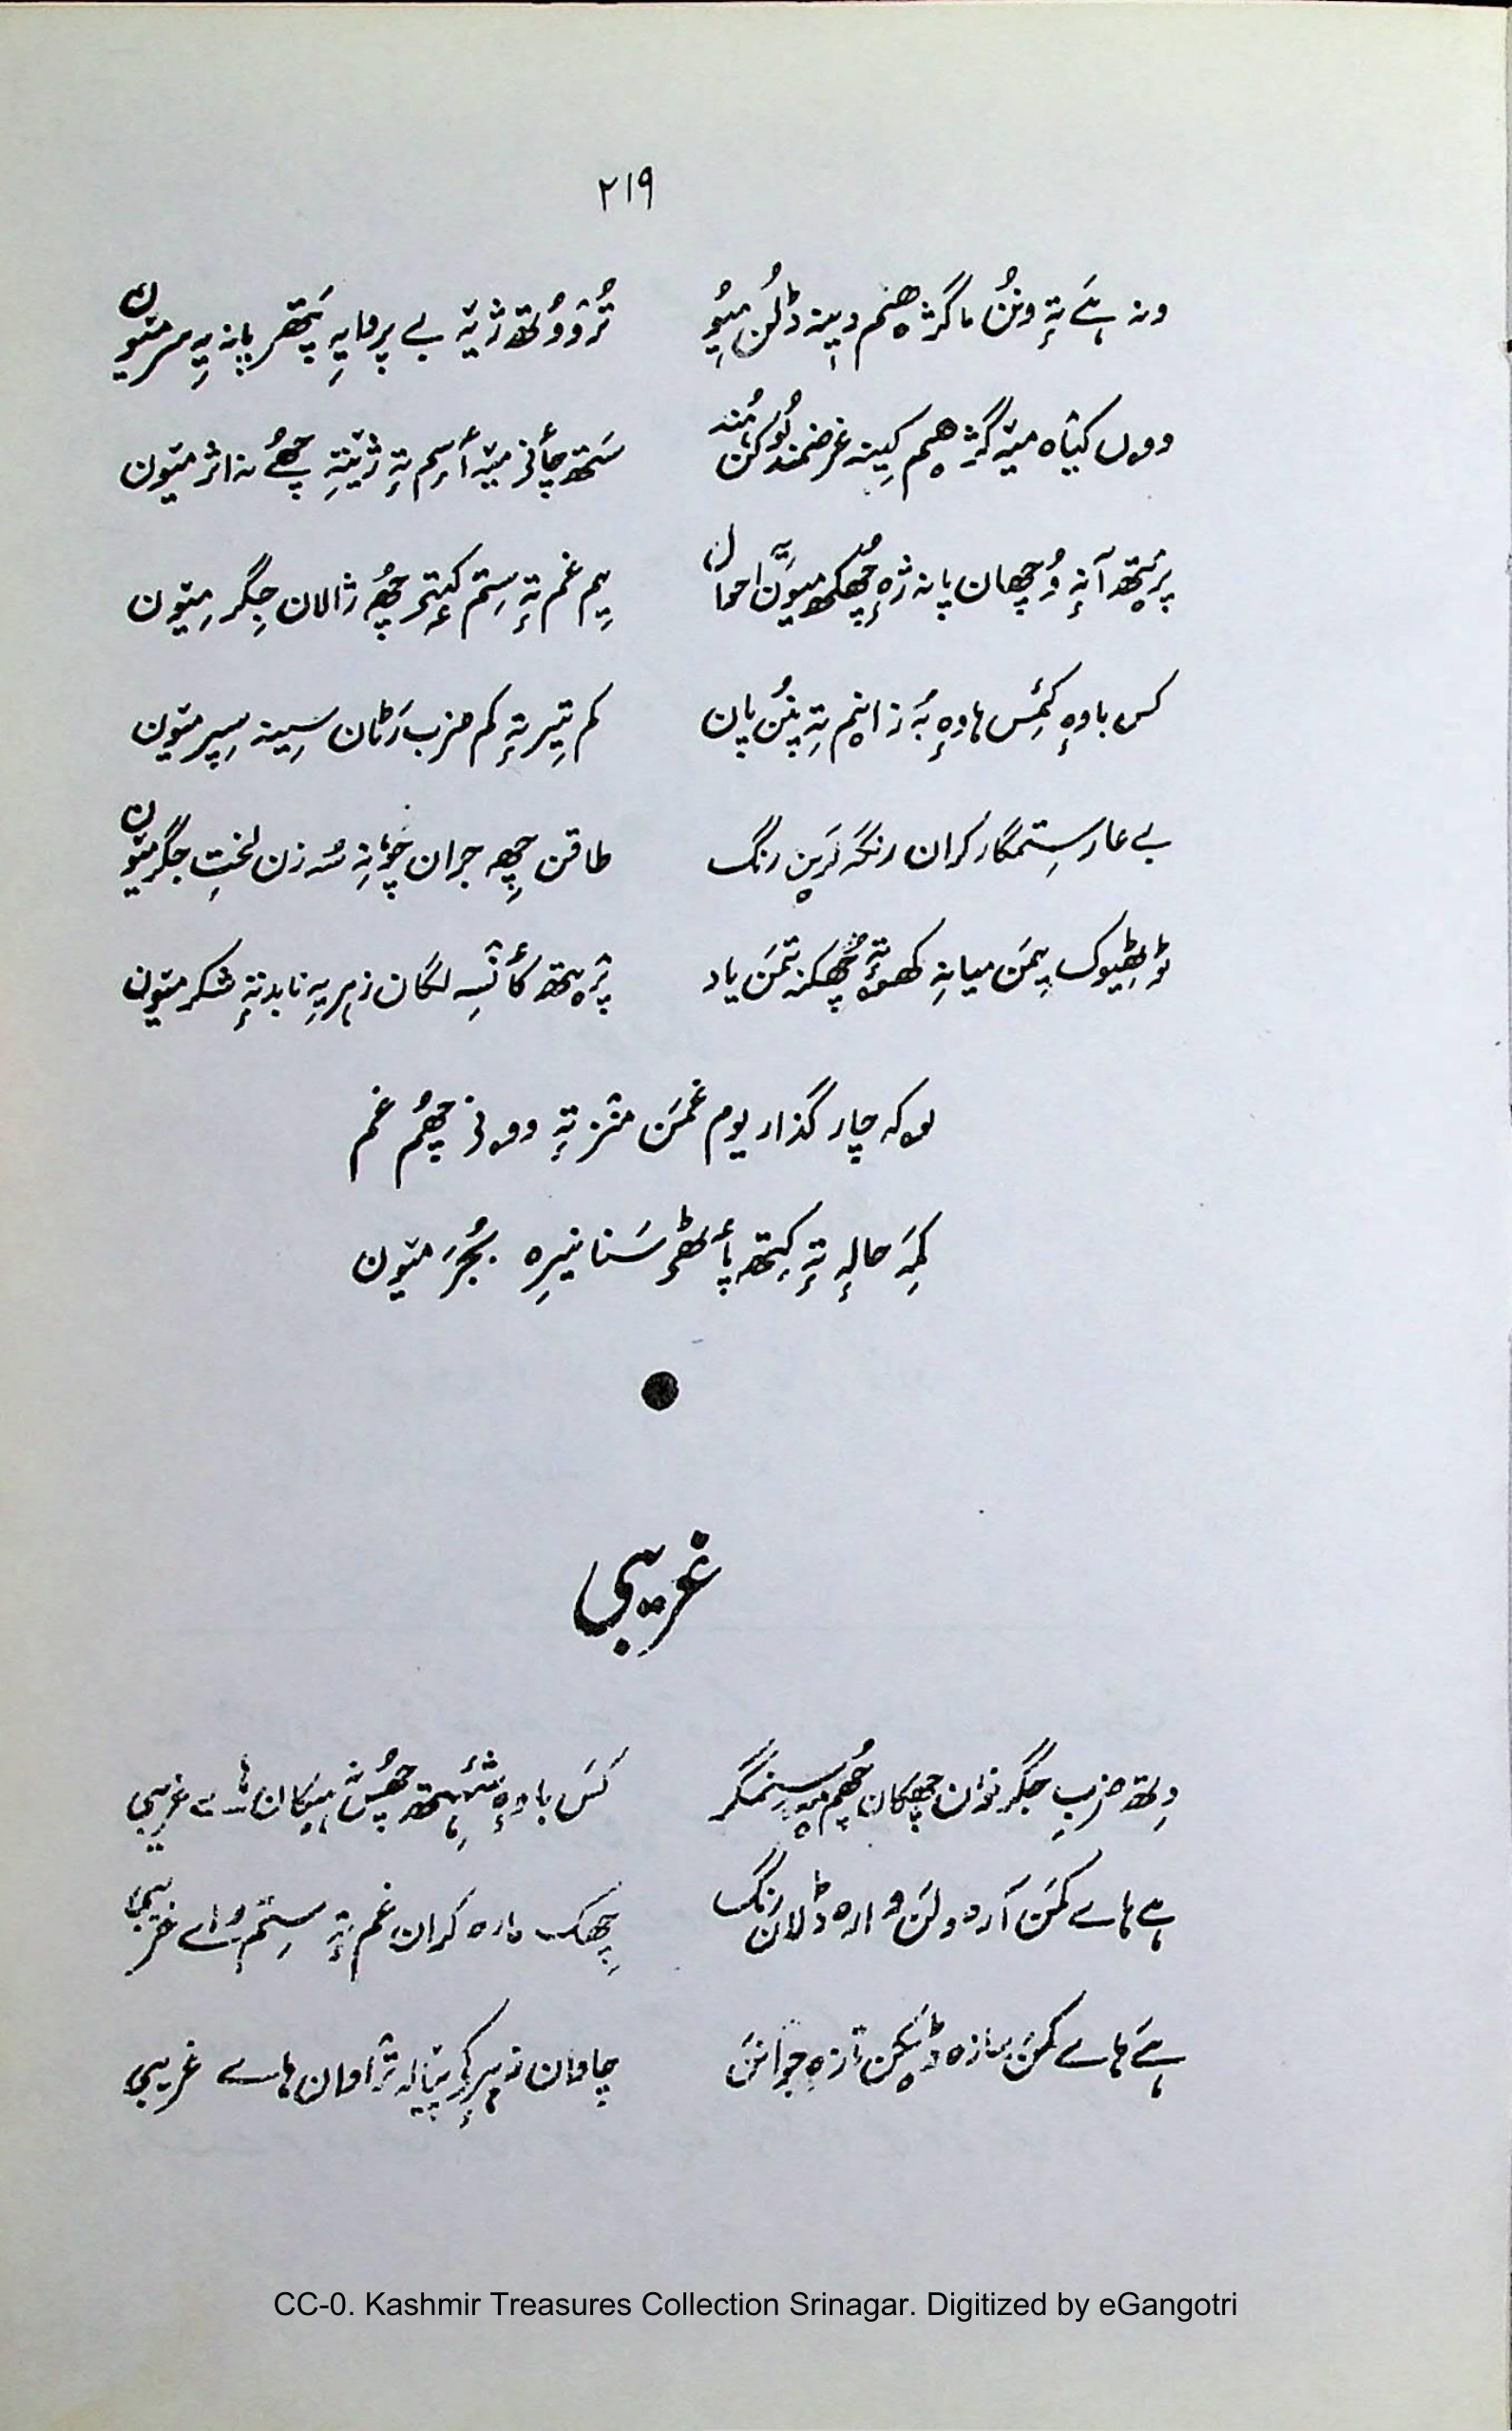 ۲۱۹
ونہ ہے تہٕ ونُن ماگژھیم دینہ ڈلُن میٛوُن تُرووُتھ ژیٚہ بے پروایہِ پَتھر پانہ یہِ سر میٛون
ووں کیٛاہ میٚہ گژھیم کینہ غرضمند لُوکُن ہُند سَتھ چأنؠ میٚہ أسٕم تہٕ ژیٚنتہِ چھےُ نہ اثر میٛون
پرٛیتھ آنہٕ وُچھان پانہ ژہٕ چھُکھ میوٗن احوال یِم غم تہٕ سِتم کٔیتؠ چھُ ژالان جِگر میٛون
کس باوہٕ کٔمِس ہاوہٕ بہٕ زانہم تہِ پنُن پان کم تیٖر تہٕ کم ضرب رَٹان سیٖنہ سِپر میٛون
بے عار ستمگار کران رنگہٕ رنگ طاقن چھِ جران چوٚنہِ سُہ زن لختِ جگر میٛون
یِمَن میانہِ کھوتہٕ چھُکنہ تِمَن یاد پرٛیتھ کأنٛسہِ لگان زہر یہِ نابد تہٕ شکر میٛون
چار گذاریوم غمَن منٛز تہٕ وونؠ چھُم غم
کمہِ حالہٕ تہٕ کِتھ پأٹھؠ سَنا نیرِہ بُجَر میٛون
غریبی
دِتھ ضربِ جگر نوٗن چھکان چھُم ستمگر کَس باوہٕ چھُس ہیکان ہاے غریبی
ہے ہاے کمَن آرہ ولَن ڈلان رنگ چھِکھ پارہ کران غم تہٕ سِتم ہاے غریبی
ہے ہاے کمَن سازہ ڈیکن تازہ جوانَن چاوان زہرکؠ پیالہٕ ژاوان ہاے غریبی
CC-0. Kashmir Treasures Collection Srinagar. Digitized by eGangotri